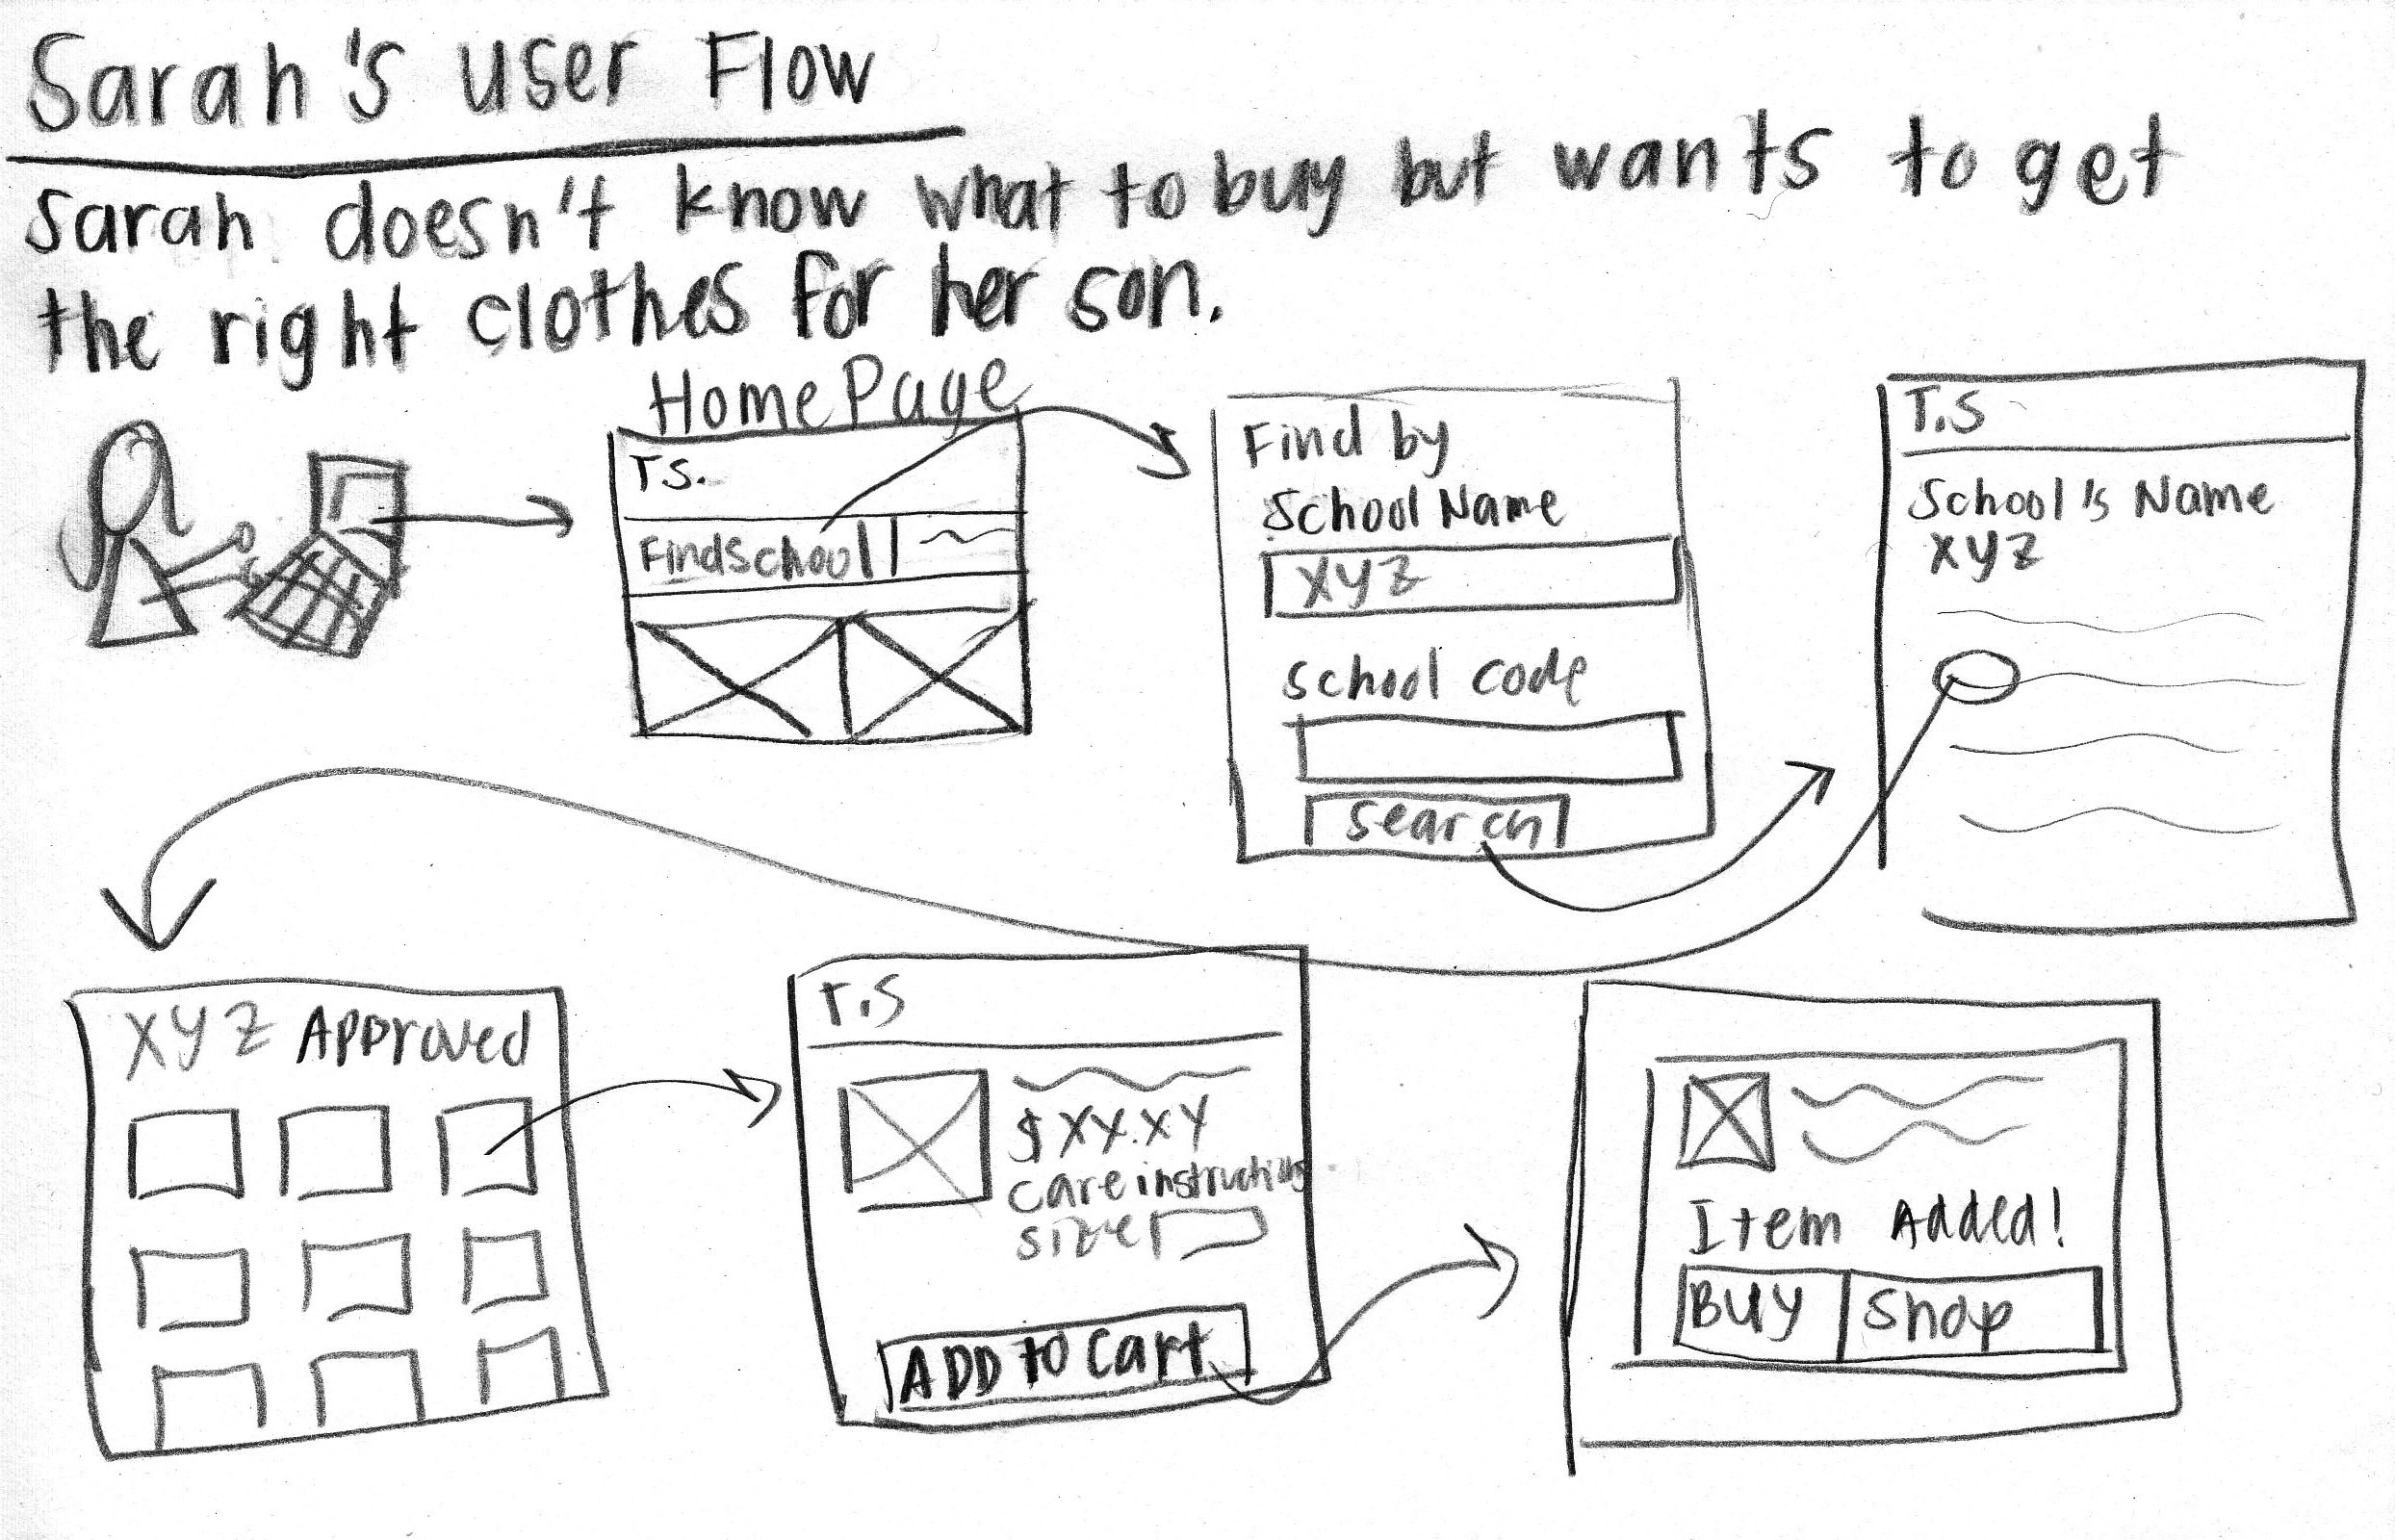 Sarah's user Flow
Sarah doesn't know what to buy but wants to get
the right clothes for her son.
Home Page
T.S.
Find School
Find by
School Name
XYZ
school code
search
T.S
School's Name
XYZ
XYZ Approved
T.S
$XY.XY
care instructions
size
ADD to cart
Item Added!
BUY
Shop